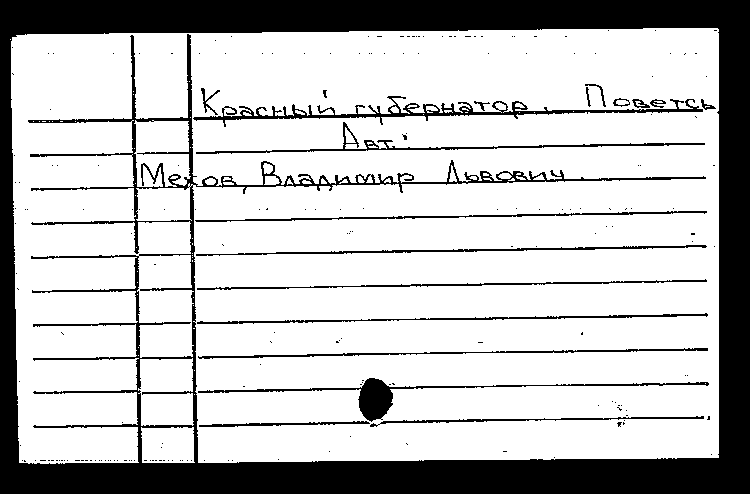 Красный губернатор. Поветсь
Авт:
Мехов, Владимир Львович.